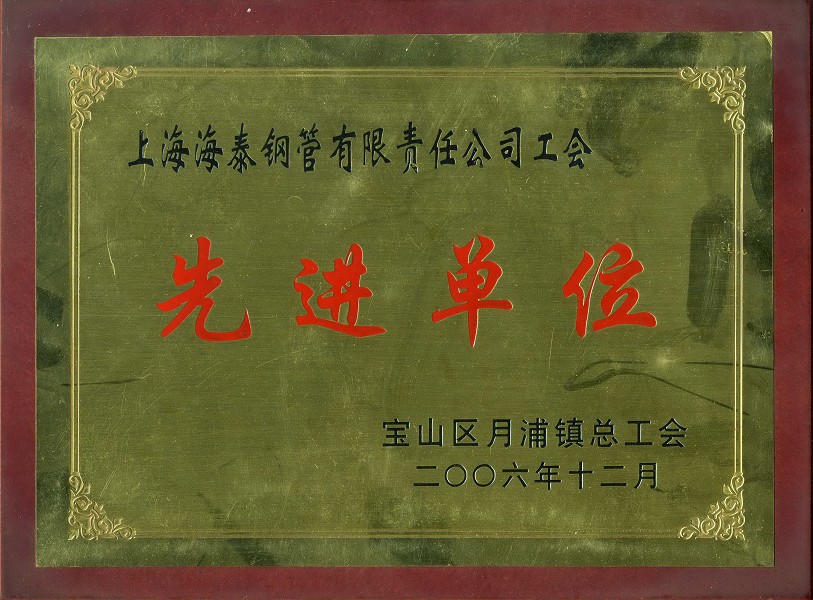 上海海泰钢管有限责任公司工会
先进单位
宝山区月浦镇总工会
二〇〇六年十二月